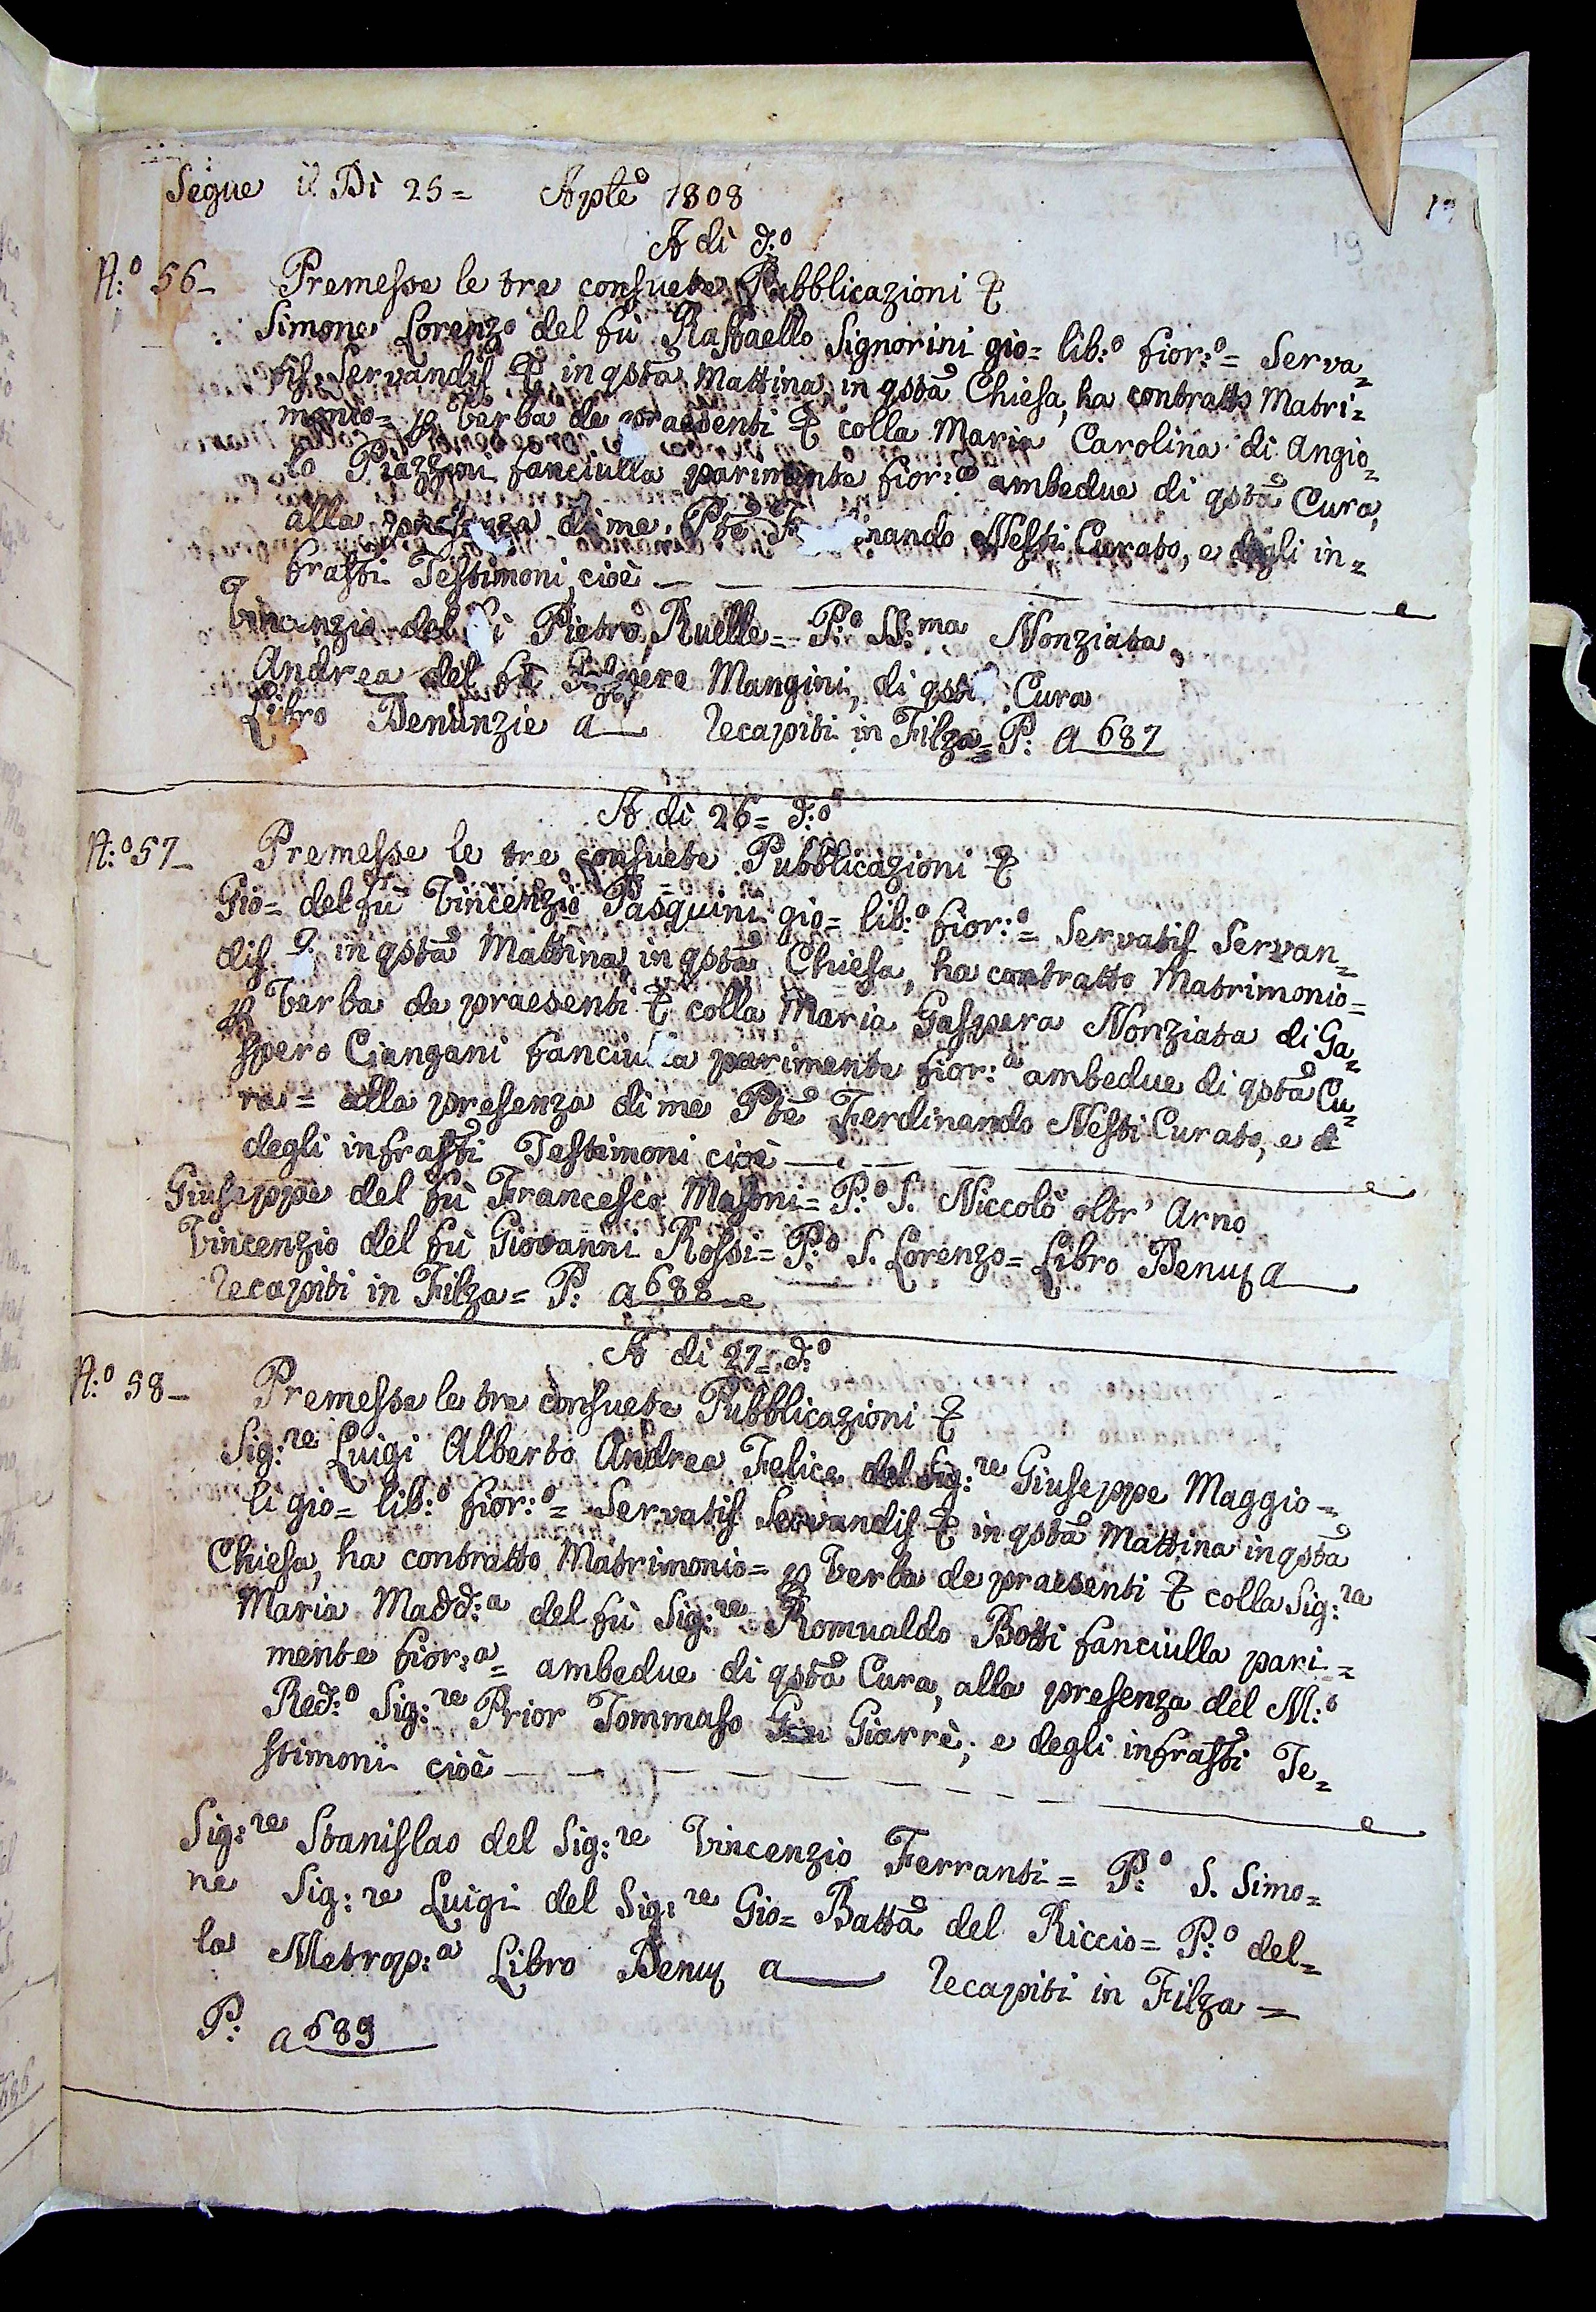 Segue il Dì 25= Aple 1808
19
19
A dì d:o
N:o 56_ Premesse le tre consuete Pubblicazioni &
Simone Lorenzo del fù Raffaello Signorini gio= lib:o fior:o= Serva=
tis Servandis & in qsta Mattina, in qsta Chiesa, ha contratto Matri=
monio= p Verba de praesenti & colla Maria Carolina di Angio=
lo Piazzini fanciulla parimente fior:a ambedue di qsta Cura,
alla presenza di me Pte nando Nesti Curato, e degli in=
fratti Testimoni, cioè
Vincenzio del Pietro Ruelle= P:o SS:ma Nonziata
Andrea del fù Mangini, di qsta Cura
Libro Denunzie a__ recapiti in Filza= P: a 687
A dì 26= d:o
N:o 57_ Premesse le tre consuete Pubblicazioni &
Gio= del fù Vincenzio Pasquini gio= lib:o fior:o= Servatis Servan=
dis & in qsta Mattina, in qsta Chiesa, ha contratto Matrimonio=
p Verba de praesenti & colla Maria Gaspera Nonziata di Ga=
spero Ciangani fanciulla parimente fior:a ambedue di qsta Cu=
ra= alla presenza di me Pte Ferdinando Nesti Curato, e
degli infratti Testimoni cioè
Giuseppe del fù Francesco Masoni= P:o S. Niccolò oltr' Arno
Vincenzio del fù Giovanni Rossi= P:o S. Lorenzo= Libro Denuz a__
recapiti in Filza= P: a 688
A dì 27= d:o
N:o 58_ Premesse le tre consuete Pubblicazioni &
Sig:re Luigi Alberto Andrea Felice del Sig:re Giuseppe Maggio=
li gio= lib:o fior:o= Servatis Servandis & in qsta Mattina in qsta
Chiesa, ha contratto Matrimonio= p Verba de praesenti & colla Sig:ra
Maria Madd:a del fù Sig:re Romualdo Botti fanciulla pari=
mente fior:a= ambedue di qsta Cura, alla presenza del M:o
Red:o Sig:re Prior Tommaso Giarrè; e degli infratti Te=
stimoni cioè
Sig:re Stanislao del Sig:re Vincenzio Ferranti= P:o S. Simo=
ne Sig:re Luigi del Sig:re Gio= Batta del Riccio= P:o del=
la Metrop:a Libro Denuz a__ recapiti in Filza=
P: a 689